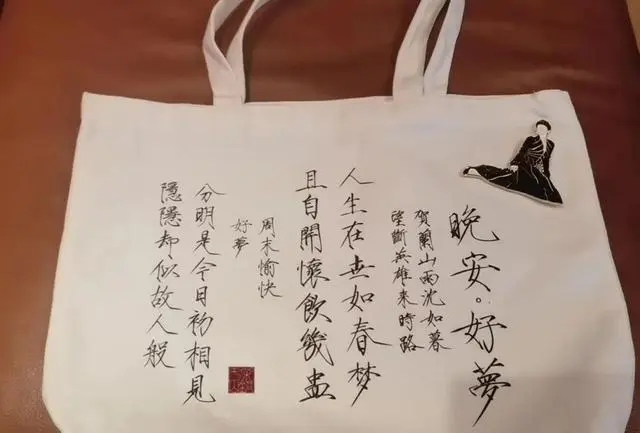 晚安。好夢
賀蘭山雨沈如暮
望斷英雄來時路
人生在世如春梦
且自開懷飲幾盅
周末愉快
好夢
分明是今日初相見
隱隱却似故人般